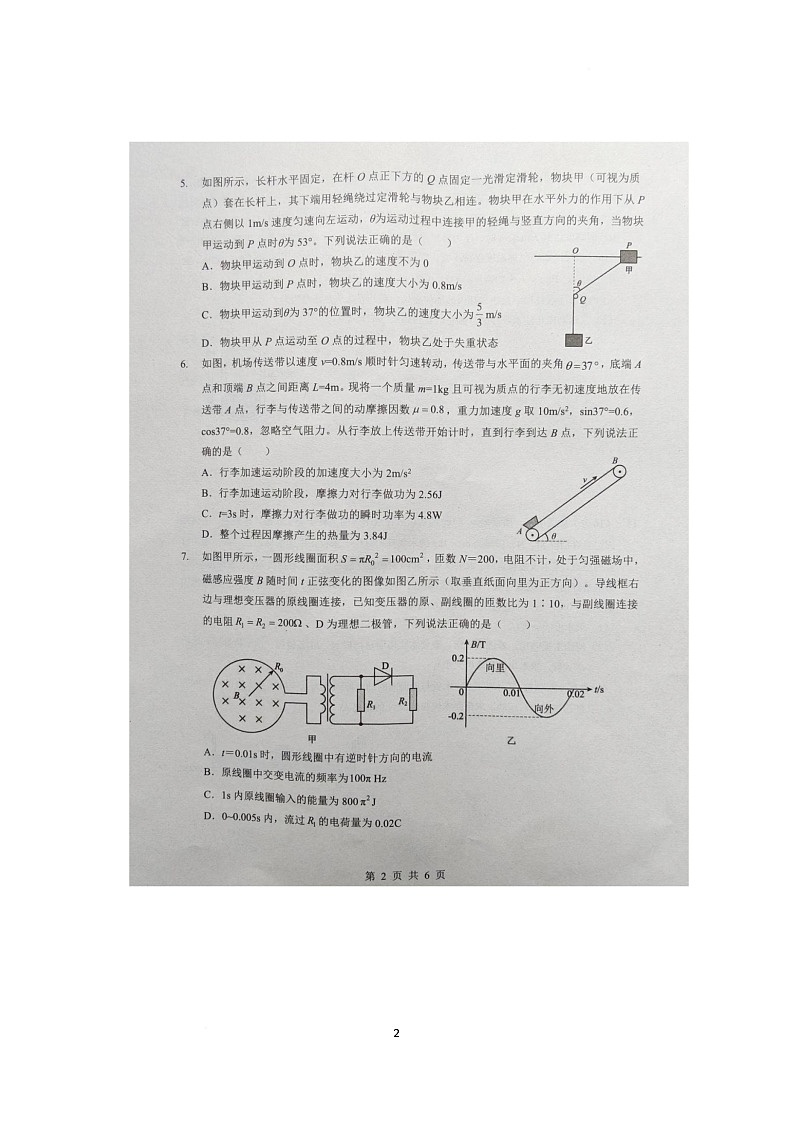 5. 如图所示，长杆水平固定，在杆 O 点正下方的 Q 点固定一光滑定滑轮，物块甲（可视为质
点）套在长杆上，其下端用轻绳绕过定滑轮与物块乙相连。物块甲在水平外力的作用下从 P
点右侧以 1m/s 速度匀速向左运动，θ为运动过程中连接甲的轻绳与竖直方向的夹角，当物块
甲运动到 P 点时θ为 53°。下列说法正确的是（　　）
A．物块甲运动到 O 点时，物块乙的速度不为 0
B．物块甲运动到 P 点时，物块乙的速度大小为 0.8m/s
C．物块甲运动到θ为 37°的位置时，物块乙的速度大小为 5/3 m/s
D．物块甲从 P 点运动至 O 点的过程中，物块乙处于失重状态
O
P
甲
θ
Q
乙
6. 如图，机场传送带以速度 v=0.8m/s 顺时针匀速转动，传送带与水平面的夹角 θ=37°，底端 A
点和顶端 B 点之间距离 L=4m。现将一个质量 m=1kg 且可视为质点的行李无初速度地放在传
送带 A 点，行李与传送带之间的动摩擦因数 μ=0.8，重力加速度 g 取 10m/s²，sin37°=0.6，
cos37°=0.8，忽略空气阻力。从行李放上传送带开始计时，直到行李到达 B 点，下列说法正
确的是（　　）
A．行李加速运动阶段的加速度大小为 2m/s²
B．行李加速运动阶段，摩擦力对行李做功为 2.56J
C．t=3s 时，摩擦力对行李做功的瞬时功率为 4.8W
D．整个过程因摩擦产生的热量为 3.84J
B
v
A
θ
7. 如图甲所示，一圆形线圈面积 S=πR₀²=100cm²，匝数 N=200，电阻不计，处于匀强磁场中，
磁感应强度 B 随时间 t 正弦变化的图像如图乙所示（取垂直纸面向里为正方向）。导线框右
边与理想变压器的原线圈连接，已知变压器的原、副线圈的匝数比为 1∶10，与副线圈连接
的电阻 R₁=R₂=200Ω、D 为理想二极管，下列说法正确的是（　　）
R₀
B
D
R₁
R₂
甲
B/T
0.2
向里
0
0.01
0.02
t/s
-0.2
向外
乙
A．t=0.01s 时，圆形线圈中有逆时针方向的电流
B．原线圈中交变电流的频率为100π Hz
C．1s 内原线圈输入的能量为 800π² J
D．0~0.005s 内，流过 R₁ 的电荷量为 0.02C
第 2 页 共 6 页
2